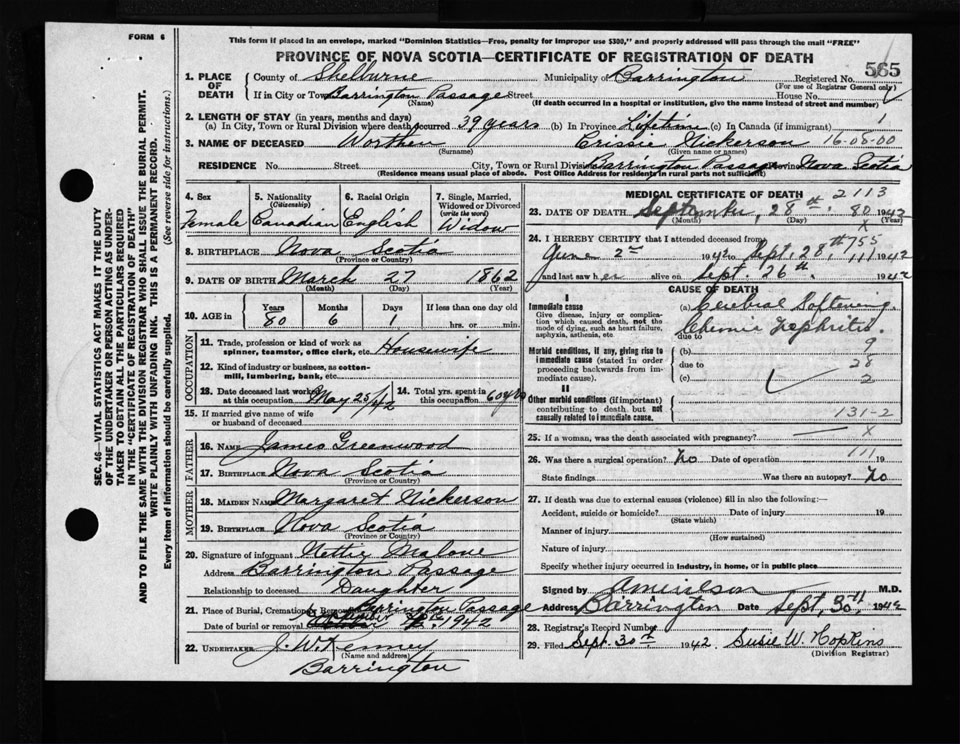 FORM 6
This form if placed in an envelope, marked "Dominion Statistics—Free, penalty for improper use $300," and properly addressed will pass through the mail "FREE"
PROVINCE OF NOVA SCOTIA—CERTIFICATE OF REGISTRATION OF DEATH
SEC. 46—VITAL STATISTICS ACT MAKES IT THE DUTY
OF THE UNDERTAKER OR PERSON ACTING AS UNDER-
TAKER TO OBTAIN ALL THE PARTICULARS REQUIRED
IN THE "CERTIFICATE OF REGISTRATION OF DEATH"
AND TO FILE THE SAME WITH THE DIVISION REGISTRAR WHO SHALL ISSUE THE BURIAL PERMIT.
WRITE PLAINLY WITH UNFADING INK. THIS IS A PERMANENT RECORD.
Every item of information should be carefully supplied. (See reverse side for instructions.)
1. PLACE OF DEATH County of Shelburne Municipality of Barrington Registered No. 565
(For use of Registrar General only)
If in City or Town Barrington Passage Street House No.
(Name) (If death occurred in a hospital or institution, give the name instead of street and number)
2. LENGTH OF STAY (in years, months and days) 1
(a) In City, Town or Rural Division where death occurred 39 years (b) In Province Lifetime (c) In Canada (if immigrant)
3. NAME OF DECEASED Worthen Crissie Nickerson 16-08-00
(Surname) (Given name or names)
RESIDENCE No. Street City, Town or Rural Division Barrington Passage Province Nova Scotia
(Residence means usual place of abode. Post Office Address for residents in rural parts not sufficient)
4. Sex 5. Nationality (Citizenship) 6. Racial Origin 7. Single, Married, Widowed or Divorced (write the word)
Female Canadian English Widow
8. BIRTHPLACE Nova Scotia
(Province or Country)
9. DATE OF BIRTH March 27 1862
(Month) (Day) (Year)
10. AGE in Years Months Days If less than one day old
80 6 1 hrs. or min.
OCCUPATION
11. Trade, profession or kind of work as spinner, teamster, office clerk, etc. Housewife
12. Kind of industry or business, as cotton-mill, lumbering, bank, etc.
13. Date deceased last worked at this occupation May 25/42 14. Total yrs. spent in this occupation 60 yrs
15. If married give name of wife or husband of deceased
FATHER
16. NAME James Greenwood
17. BIRTHPLACE Nova Scotia
(Province or Country)
MOTHER
18. MAIDEN NAME Margaret Nickerson
19. BIRTHPLACE Nova Scotia
(Province or Country)
20. Signature of informant Nettie Malone
Address Barrington Passage
Relationship to deceased Daughter
21. Place of Burial, Cremation or Removal Barrington Passage
Date of burial or removal 1942
22. UNDERTAKER J. W. Kenney
(Name and address)
Barrington
MEDICAL CERTIFICATE OF DEATH 2113
23. DATE OF DEATH September, 28th. 80 1942
(Month) (Day) (Year)
X
24. I HEREBY CERTIFY that I attended deceased from 755
June 2nd 1942 to Sept. 28th 111 1942
and last saw her alive on Sept. 26th. 1942
CAUSE OF DEATH
I
Immediate cause (a) Cerebral Softening
Give disease, injury or complication which caused death, not the mode of dying, such as heart failure, asphyxia, asthenia, etc. due to Chronic Nephritis.
9
Morbid conditions, if any, giving rise to immediate cause (stated in order proceeding backwards from immediate cause). (b)
due to 28
(c) 2
II
Other morbid conditions (if important) contributing to death but not causally related to immediate cause. 131-2
25. If a woman, was the death associated with pregnancy? X
26. Was there a surgical operation? No Date of operation 111 19
State findings Was there an autopsy? No
27. If death was due to external causes (violence) fill in also the following:—
Accident, suicide or homicide? Date of injury 19
(State which)
Manner of injury
(How sustained)
Nature of injury
Specify whether injury occurred in industry, in home, or in public place
Signed by M.D.
Address Barrington Date Sept. 30th 1942
28. Registrar's Record Number
29. Filed Sept. 30th 1942 Susie W. Hopkins
(Division Registrar)